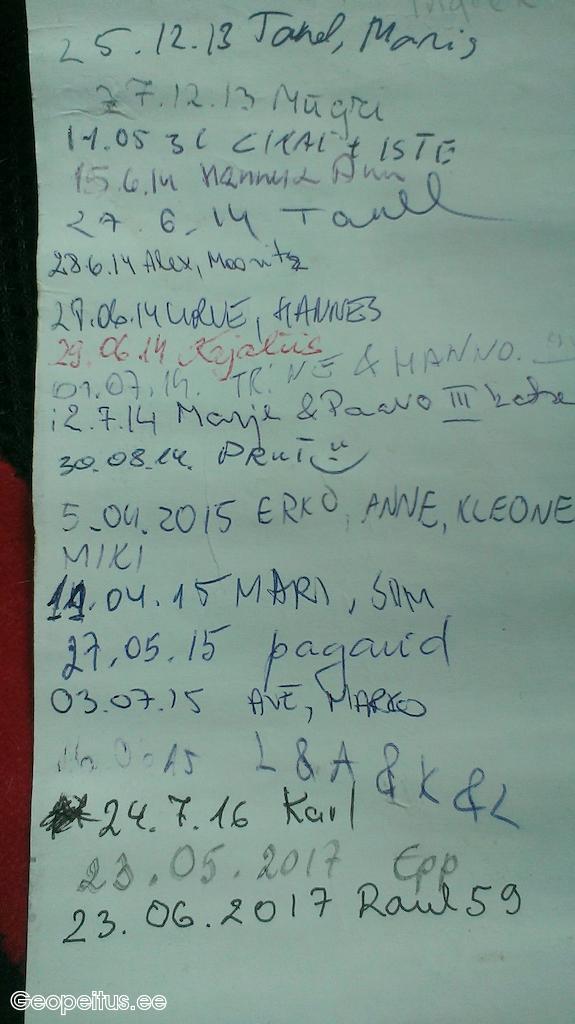 25.12.13 Tanel, Maris
27.12.13 Mügri
11.05 ISTE
15.6.14 Ann
27.6.14 Tanel
28.6.14 Alex,
29.06.14 URVE, HANNES
29.06.14 Kajaliis
01.07.14. TRINE & HANNO.
12.7.14 Marje & Paavo III
30.08.14. PRIIT
5.04.2015 ERKO, ANNE, KLEONE
MIKI
11.04.15 MARI, SIIM
27.05.15 pagarid
03.07.15 AVE, MARKO
15 L & A & K & L
24.7.16 Karl
23.05.2017 Epp
23.06.2017 Raul59
Geopeitus.ee